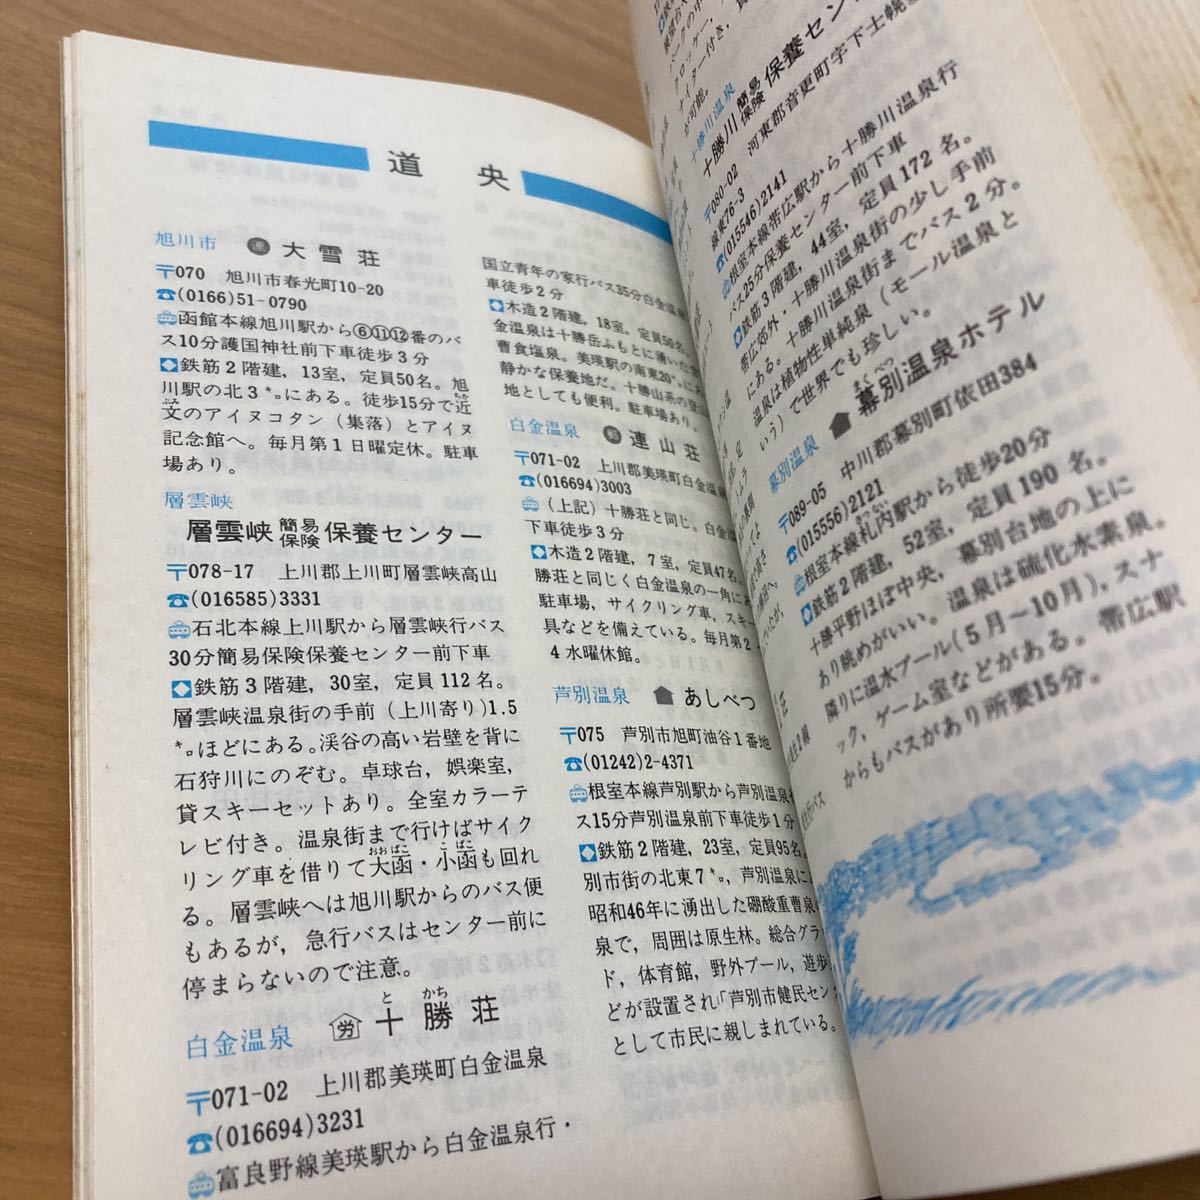 道央
旭川市 連 大雪荘
〒070 旭川市春光町10-20
☎(0166)51-0790
函館本線旭川駅から⑥⑪⑫番のバ
ス10分護国神社前下車徒歩3分
鉄筋2階建,13室,定員50名。旭
川駅の北3㌔にある。徒歩15分で近
文のアイヌコタン(集落)とアイヌ
記念館へ。毎月第1日曜定休。駐車
場あり。
層雲峡
層雲峡簡易保険保養センター
〒078-17 上川郡上川町層雲峡高山
☎(016585)3331
石北本線上川駅から層雲峡行バス
30分簡易保険保養センター前下車
鉄筋3階建,30室,定員112名。
層雲峡温泉街の手前(上川寄り)1.5
㌔ほどにある。渓谷の高い岩壁を背に
石狩川にのぞむ。卓球台,娯楽室,
貸スキーセットあり。全室カラーテ
レビ付き。温泉街まで行けばサイク
リング車を借りて大函・小函も回れ
る。層雲峡へは旭川駅からのバス便
もあるが,急行バスはセンター前に
停まらないので注意。
白金温泉 労 十勝荘
〒071-02 上川郡美瑛町白金温泉
☎(016694)3231
富良野線美瑛駅から白金温泉行・
国立青年の家行バス35分白金温泉
車徒歩2分
木造2階建,18室,定員50名
金温泉は十勝岳ふもとに湧いた
曹食塩泉。美瑛駅の南東20㌔に
静かな保養地だ。十勝山系の登山
地としても便利。駐車場あり。
白金温泉 連山荘
〒071-02 上川郡美瑛町白金温
☎(016694)3003
(上記)十勝荘と同じ。白金温
下車徒歩3分
木造2階建,7室,定員47名
勝荘と同じく白金温泉の一角に
駐車場,サイクリング車,スキー
具などを備えている。毎月第2
4水曜休館。
芦別温泉 あしべつ
〒075 芦別市旭町油谷1番地
☎(01242)2-4371
根室本線芦別駅から芦別温泉
ス15分芦別温泉前下車徒歩1分
鉄筋2階建,23室,定員95名
別市街の北東7㌔,芦別温泉に
昭和46年に湧出した硼酸重曹
泉で,周囲は原生林。総合グラ
ド,体育館,野外プール,遊歩
どが設置され「芦別市健民セン
として市民に親しまれている。
ナイター付き,
が可能。
十勝川温泉
十勝川簡易保険保養セン
〒080-02 河東郡音更町字下士幌
線東76-3
☎(015546)2141
根室本線帯広駅から十勝川温泉行
バス25分保養センター前下車
鉄筋3階建,44室,定員172名。
帯広郊外・十勝川温泉街の少し手前
にある。十勝川温泉街までバス2分。
温泉は植物性単純泉(モール温泉と
いう)で世界でも珍しい。
幕別温泉 幕別温泉ホテル
〒089-05 中川郡幕別町依田384
☎(015556)2121
根室本線札内駅から徒歩20分
鉄筋2階建,52室,定員190名。
十勝平野ほぼ中央,幕別台地の上に
あり眺めがいい。温泉は硫化水素泉。
隣りに温水プール(5月〜10月),スナ
ック,ゲーム室などがある。帯広駅
からもバスがあり所要15分。